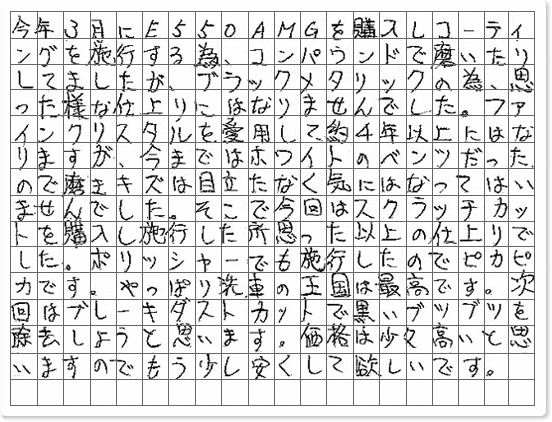 今年3月にE550AMGを購入しコーティ
ングを施行する為、コンパウンドで磨いたり
してましたが、ブラックメタリックの為、思
った様な仕上りにはなりませんでした。ファ
インクリスタルを愛用して約4年以上にはな
りますが、今まではホワイトのベンツだった
ので磨きキズは目立たなく気にはなってはい
ませんでした。そこで今回はスクラッチカッ
トを購入し施行した所思った以上の仕上りで
した。ポリッシャーでも施行したのでピカピ
カです。やっぱり洗車の王国は最高です。次
回はブレーキダストカットで黒いブツブツを
除去しようと思います。価格は少々高いと思
いますのでもう少し安くして欲しいです。